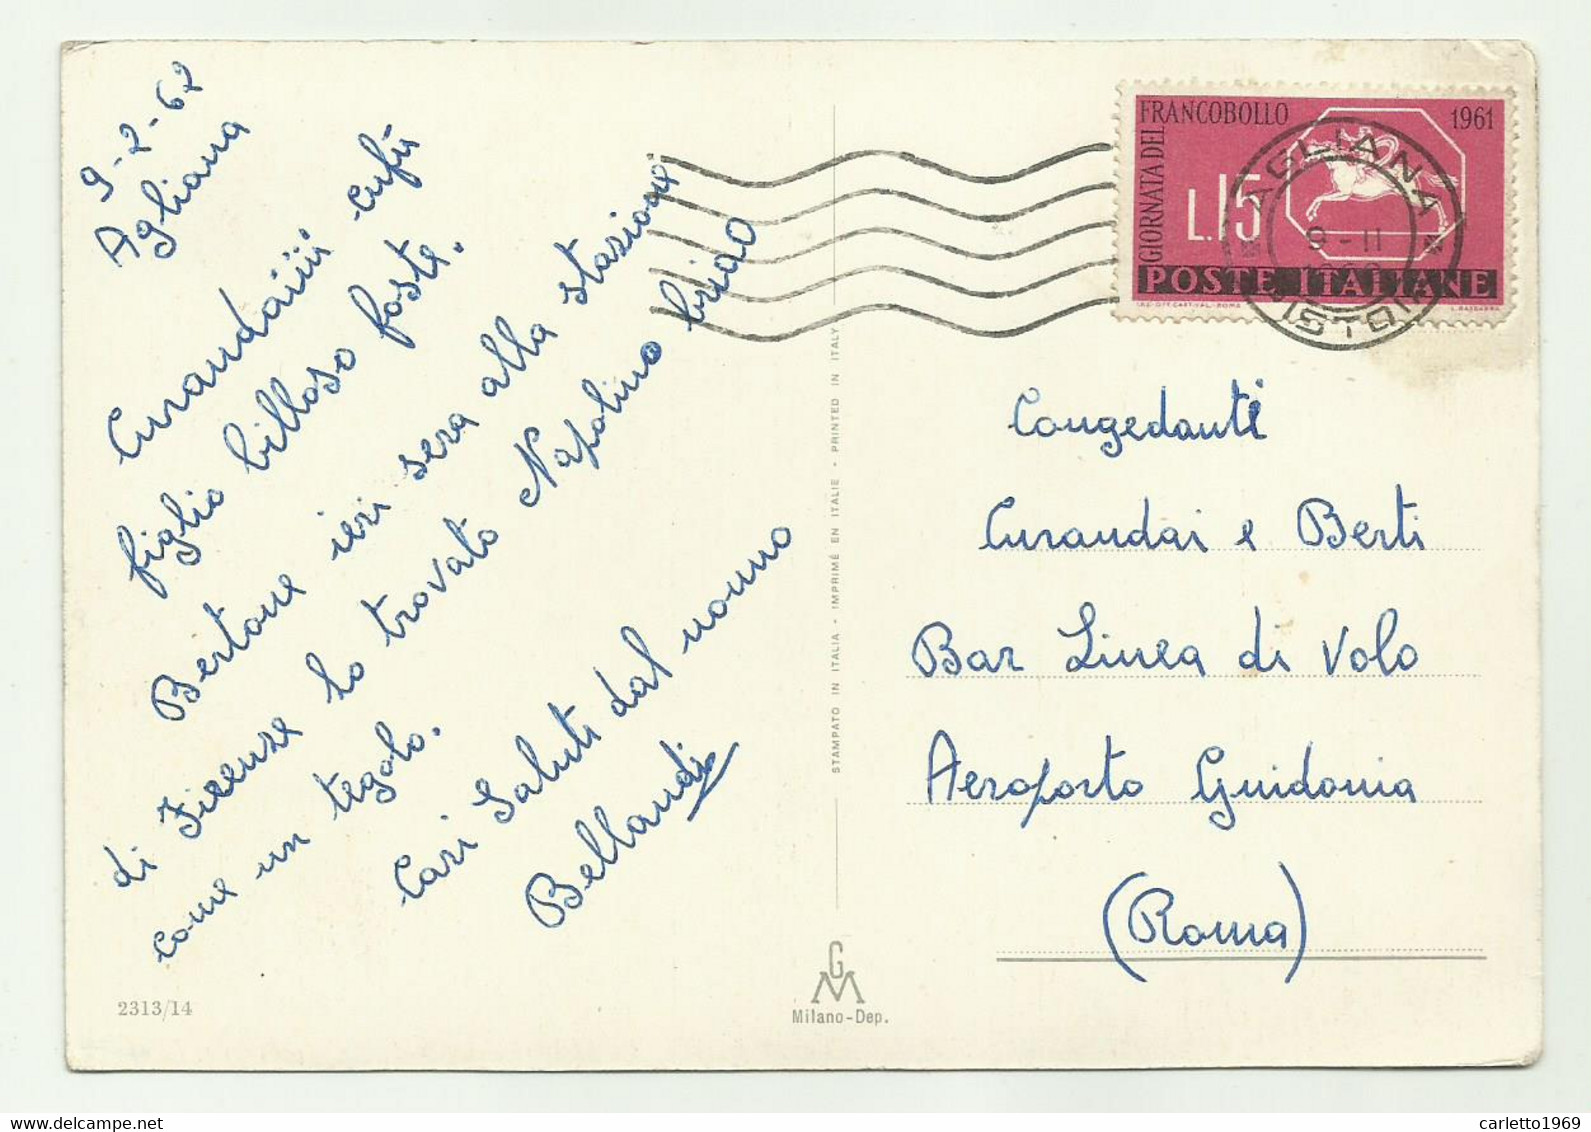 9-2-62
Agliana
Curandaiiii. cufù
figlio billoso foste.
Bertone ieri sera alla stazione
di Firenze ho trovato Napolino briao
come un tegolo.
Cari Saluti dal nonno
Bellandi
2313/14
STAMPATO IN ITALIA - IMPRIMÉ EN ITALIE - PRINTED IN ITALY
G
M
Milano-Dep.
GIORNATA DEL
FRANCOBOLLO 1961
L.15
POSTE ITALIANE
AGLIANA
9-11
PISTOIA
Congedanti
Curandai e Berti
Bar Linea di Volo
Aeroporto Guidonia
(Roma)
carletto1969